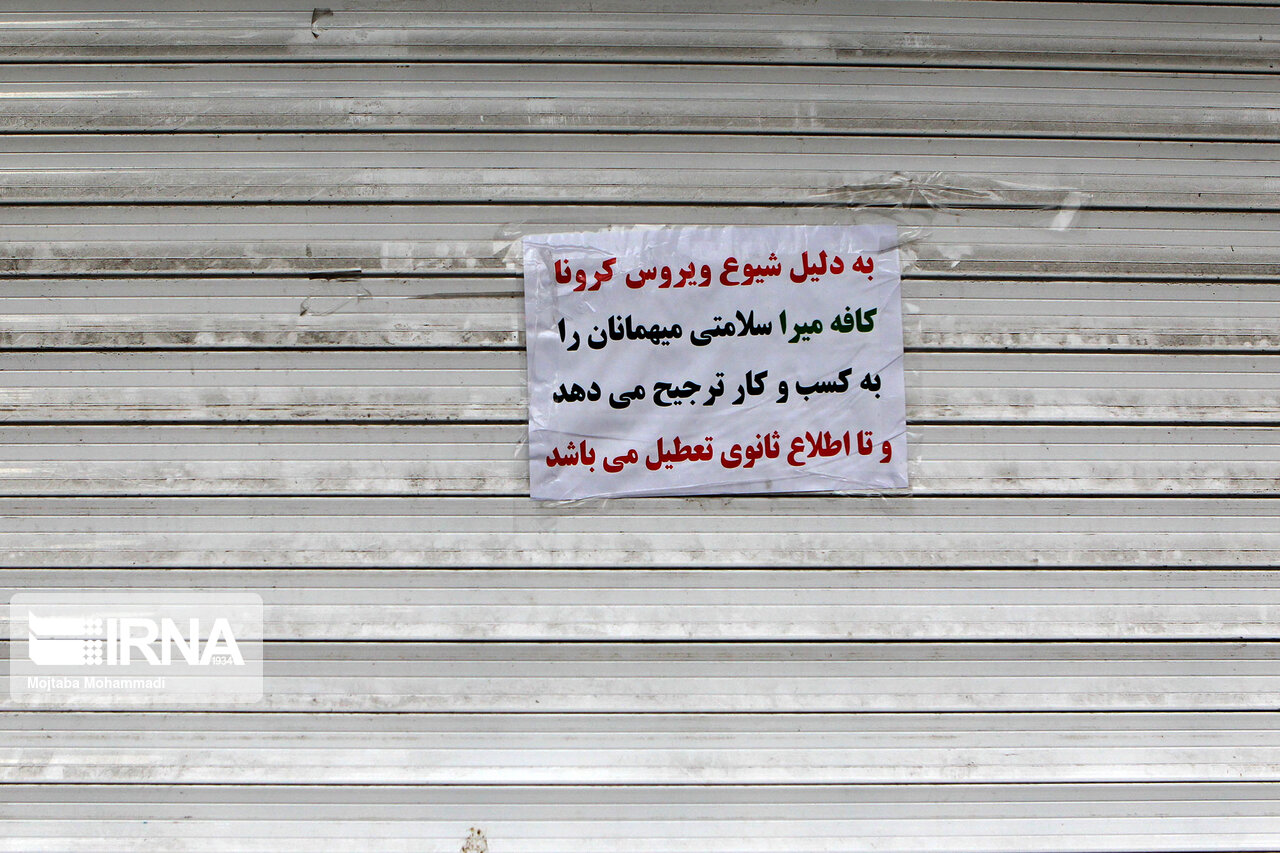 به دلیل شیوع ویروس کرونا
کافه میرا سلامتی میهمانان را
به کسب و کار ترجیح می دهد
و تا اطلاع ثانوی تعطیل می باشد
IRNA
1934
Mojtaba Mohammadi